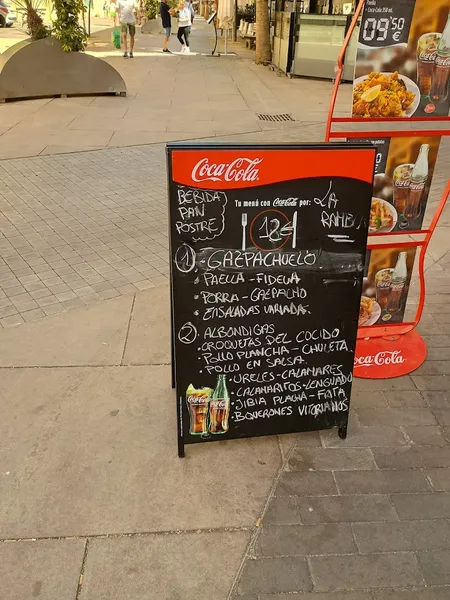 Coca-Cola
BEBIDA
PAN
POSTRE
Tu menú con Coca-Cola por:
LA
RAMBLA
12€
1 - GAZPACHUELO
• PAELLA - FIDEUA
• PORRA - GAZPACHO
• ENSALADAS VARIADA.
2 • ALBONDIGAS
• CROQUETAS DEL COCIDO
• POLLO PLANCHA - CHULETA
• POLLO EN SALSA.
• JURELES - CALAMARES
• CALAMARITOS - LENGUADO
• JIBIA PLACHA - FRITA
• BOQUERONES VITORIANOS
09'50
€
Coca-Cola